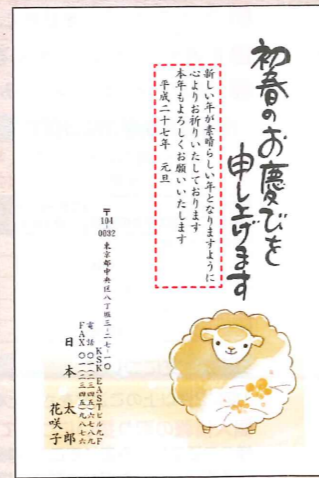 初春のお慶びを
申し上げます
新しい年が素晴らしい年となりますように
心よりお祈りいたしております
本年もよろしくお願いいたします
平成二十七年 元旦
〒104-0032 東京都中央区八丁堀三-二七-一〇
KSK EASTビル九F
電話〇一(二三四五)六七八九
FAX〇一(二三四五)九八七六
日本 太郎
花咲子